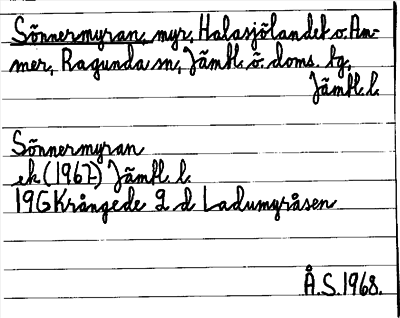 Sönnermyran, myr, Halasjölandet o. Am-
mer, Ragunda sn, Jämtl. ö. doms. tg,
Jämtl. l.
Sönnermyran
ek (1967-) Jämtl. l.
19G Krångede 2 d Ladumyråsen
Å.S. 1968.